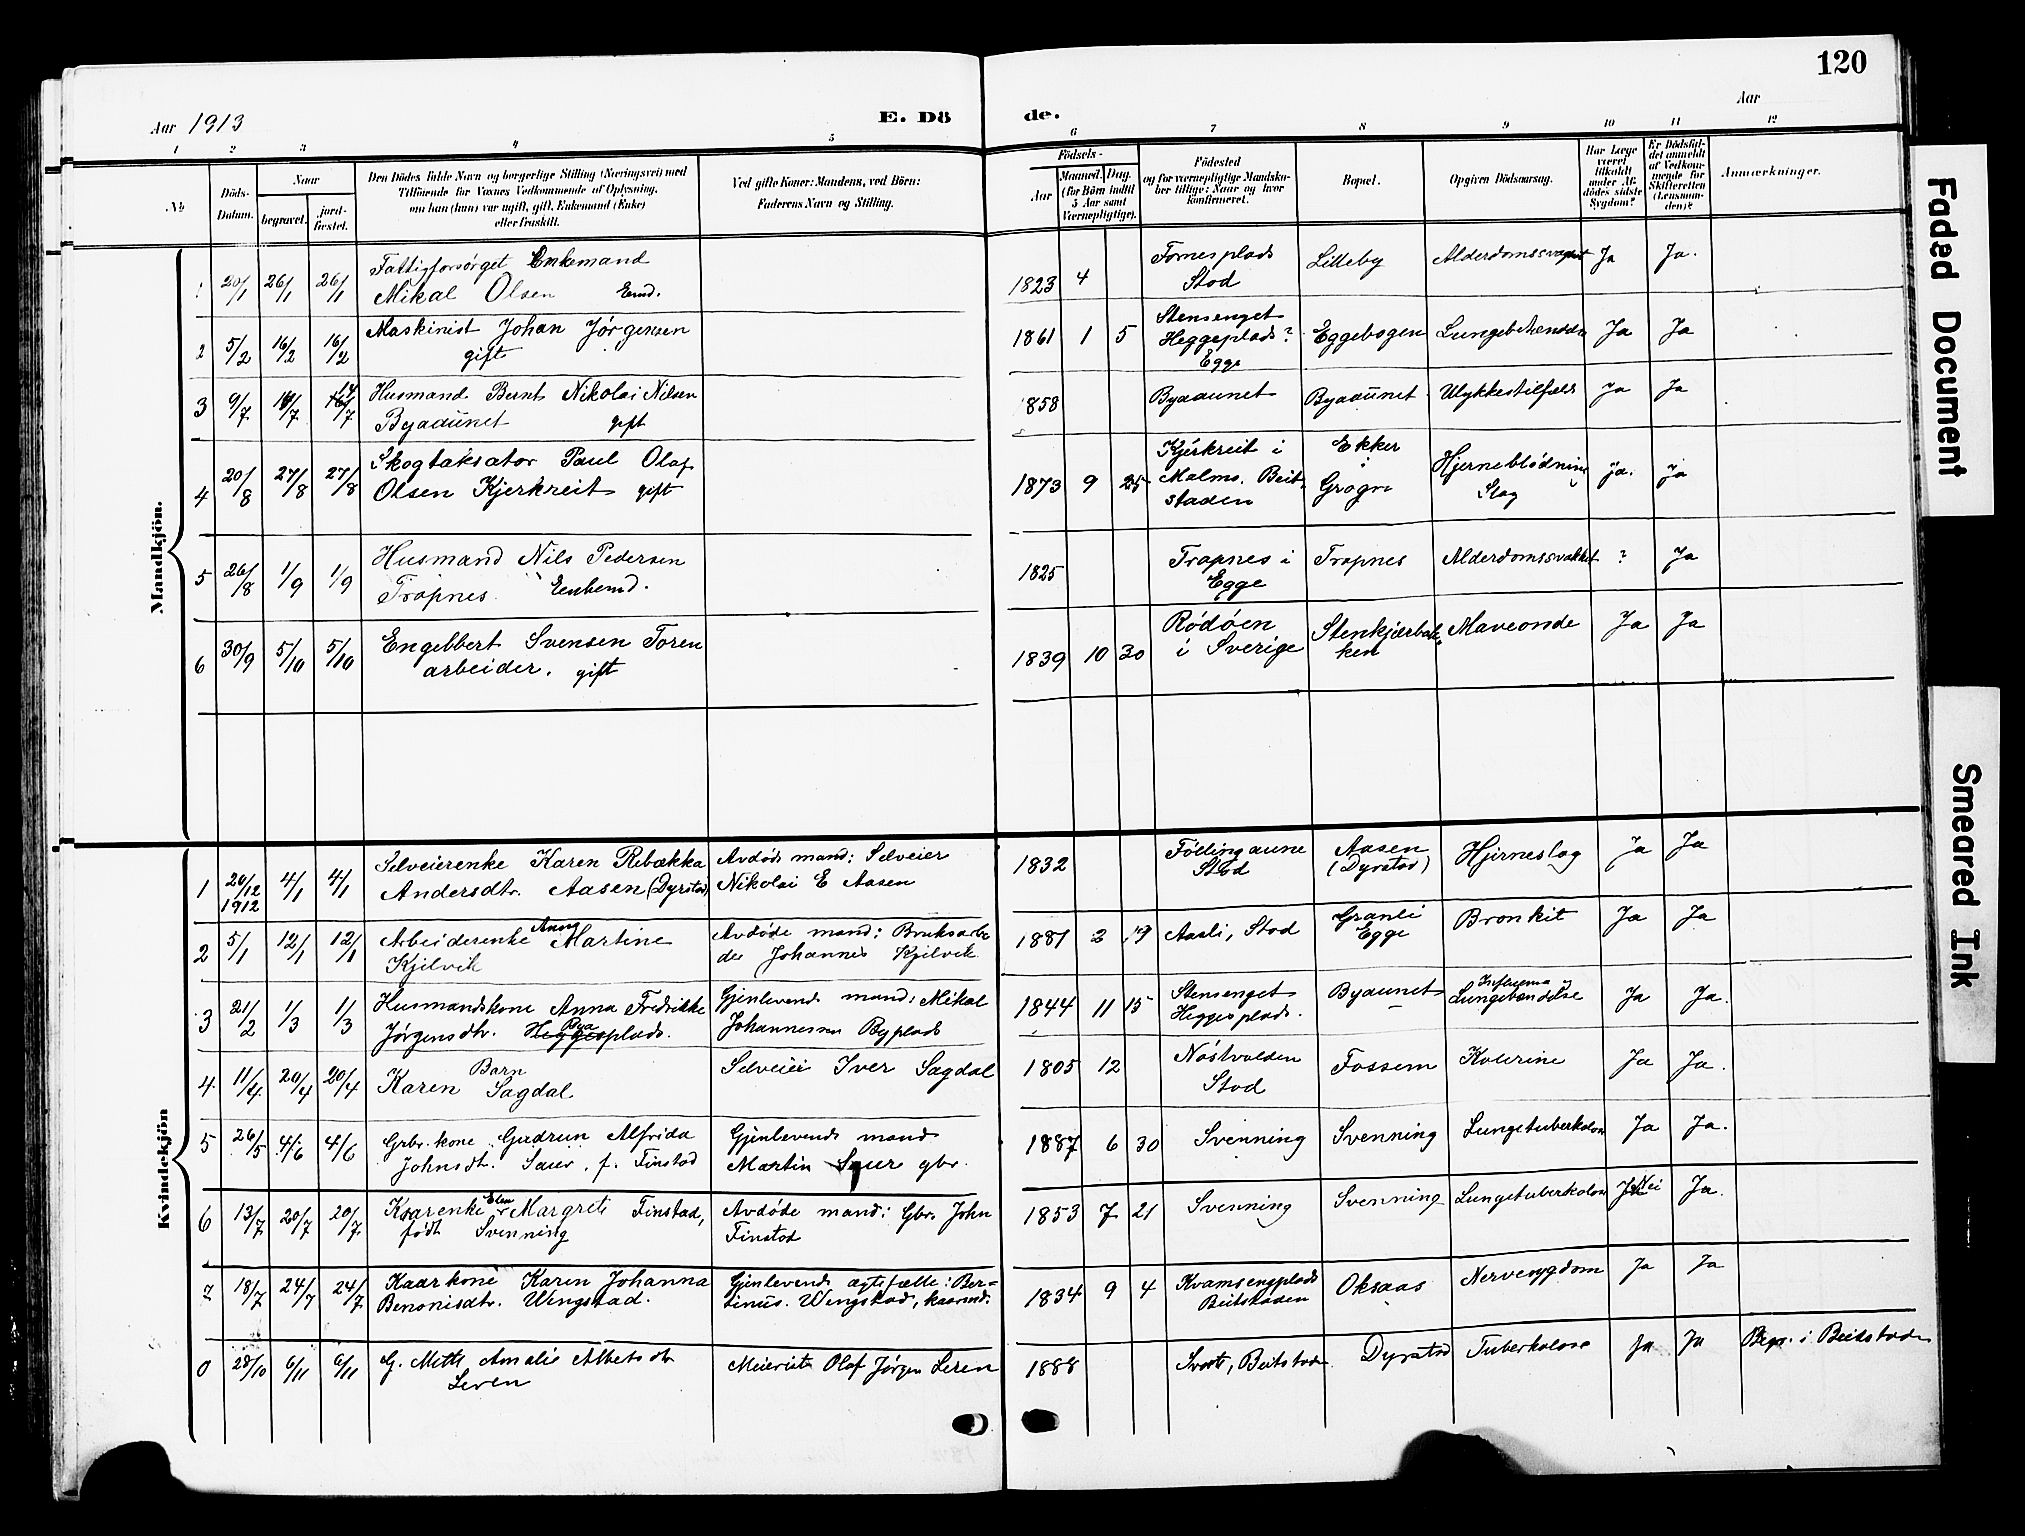 120
Aar 1913
E. Dö
de.
Aar
1 2 3 4 5 6 7 8 9 10 11 12
No
Döds-Datum.
Naar
begravet.
jord-fæstet.
Den Dödes fulde Navn og borgerlige Stilling (Næringsvei) med
Tilföiende for Voxnes Vedkommende af Oplysning,
om han (hun) var ugift, gift, Enkemand (Enke)
eller fraskilt.
Ved gifte Koner: Mandens, ved Börn:
Faderens Navn og Stilling.
Födsels-
Aar
Maaned. Dag.
(for Börn indtil
5 Aar samt
Vernepligtige).
Födested
og for værnepligtige Mandskaber tillige: Naar og hvor
konfirmeret.
Bopæl.
Opgiven Dödsaarsag.
Har Læge været tilkaldt under Afdödes sidste Sygdom?
Er Dödsfaldet anmeldt af Vedkommende for Skifteretten (Lensmanden)?
Anmærkninger.
Mandkjön.
1 20/1 26/1 26/1 Fattigforsørget Enkemand
Mikal Olsen Emd.
1823 4 Fornesplads
Stod Lilleby Alderdomssvaghet Ja Ja.
2 5/2 16/2 16/2 Maskinist Johan Jørgensen
gift
1861 1 5 Stensenget
Heggeplads?
Egge Eggebogen Lungebetændelse Ja Ja
3 9/7 /7 /7 Husmand Bernt Nikolai Nilsen
Byaaunet gift
1858 Byaaunet Byaaunet Ulykkestilfæld Ja Ja
4 20/8 27/8 27/8 Skogtaksator Paul Olaf
Olsen Kjerkreit gift
1873 9 25 Kjerkreit i
Malms. Beit-
staden Ekker
i
Hjerneblødning
Slag Ja. Ja
5 26/8 1/9 1/9 Husmand Nils Pedersen
Trapnes. Enkemd.
1825 Trapnes i
Egge Trapnes Alderdomssvakhet ? Ja
6 30/9 5/10 5/10 Engelbert Svensen Toren
arbeider. gift
1839 10 30 Rödöen
i Sverige Stenkjærbak-
ken Maveonde Ja Ja
Kvindekjön
1 26/12 1912 4/1 4/1 Selveierenke Karen Rebækka
Andersdtr. Aasen (Dyrstad)
Avdøds mand: Selveier
Nikolai E Aasen
1832 Föllingaune
Stod Aasen
(Dyrstad) Hjerneslag Ja Ja
2 5/1 12/1 12/1 Arbeiderenke Anna Martine
Kjelvik
Avdøde mand: Bruksarbei
der Johannes Kjelvik
1881 2 19 Aasli, Stod Granli
Egge Bronkit Ja Ja
3 21/2 1/3 1/3 Husmandskone Anna Fredrikke
Jørgensdtr. Bya Heggesplads.
Gjenlevende mand: Mikal
Johannessen Byplads
1844 11 15 Stensenget
Heggesplads. Byaunet Influensa
Lungebændelse Ja Ja.
4 11/4 20/4 20/4 Barn
Karen Sagdal
Selveier Iver Sagdal
1805 12 Nöstvolden
Stod Fossem Kolerine Ja Ja.
5 26/5 4/6 4/6 Grbr. kone Gudrun Alfrida
Johnsdtr. Saur, f. Finstad
Gjenlevende mand
Martin Saur gbr.
1887 6 30 Svenning Svenning Lungetuberkolose Ja Ja.
6 13/7 20/7 20/7 Kaarenke Elen Margrete Finstad,
født Svenning
Avdøde mand: Gbr. John
Finstad
1853 7 21 Svenning Svenning Lungetuberkolose Nei Ja.
7 18/7 24/7 24/7 Kaarkone Karen Johanna
Benonisdtr. Wengstad.
Gjenlevende ægtefælle: Ber-
tinus. Wengstad, kaarmd.
1834 9 4 Kvamsengplads
Beitstaden Oksaas Nervesygdom Ja Ja
28/10 6/11 6/11 G. Mette Amalie Albetsdtr
Leren
Meierist Olaf Jørgen Leren
1888 Beitstaden Dyrstad Tuberkolose Ja Ja Begr. i Beitstaden
Faded Document
Smeared Ink